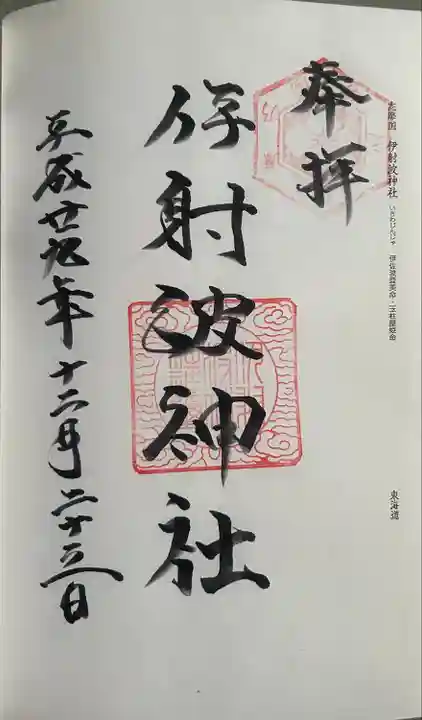 志摩国 伊射波神社 いざわじんじゃ 伊佐波登美命・玉柱屋姫命
東海道
奉拝
伊射波神社
平成廿九年十二月二十三日